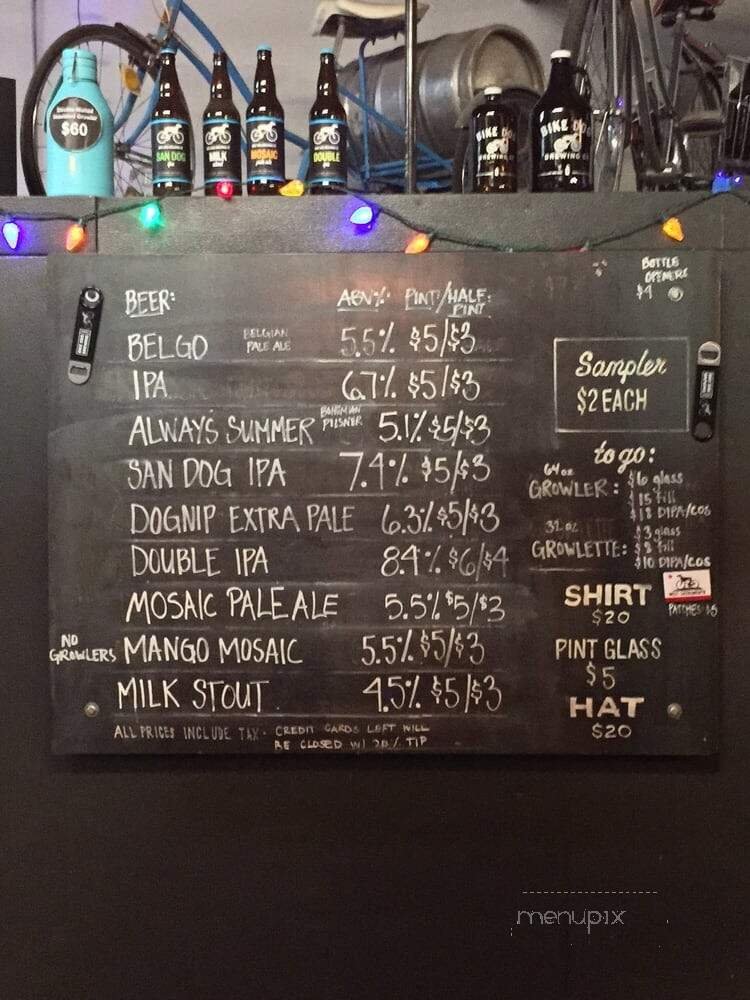 Double-Walled
Insulated Growler
$60
SAN DOG
MILK
MOSAIC
DOUBLE
BIKE DOG
BREWING CO
BIKE DOG
BREWING CO
BOTTLE
OPENERS
$4
BEER: ABV% PINT/HALF:
PINT
BELGO BELGIAN
PALE ALE 5.5% $5/$3
IPA 6.7% $5/$3
ALWAYS SUMMER BOHEMIAN
PILSNER 5.1% $5/$3
SAN DOG IPA 7.4% $5/$3
DOGNIP EXTRA PALE 6.3% $5/$3
DOUBLE IPA 8.4% $6/$4
MOSAIC PALE ALE 5.5% $5/$3
NO
GROWLERS MANGO MOSAIC 5.5% $5/$3
MILK STOUT 4.5% $5/$3
ALL PRICES INCLUDE TAX. CREDIT CARDS LEFT WILL
BE CLOSED W/ 20% TIP
Sampler
$2 EACH
to go:
64 oz
GROWLER: $6 glass
$15 fill
$18 DIPA/COS
32 oz
GROWLETTE: $3 glass
$8 fill
$10 DIPA/COS
PATCHES $5
SHIRT
$20
PINT GLASS
$5
HAT
$20
menupix